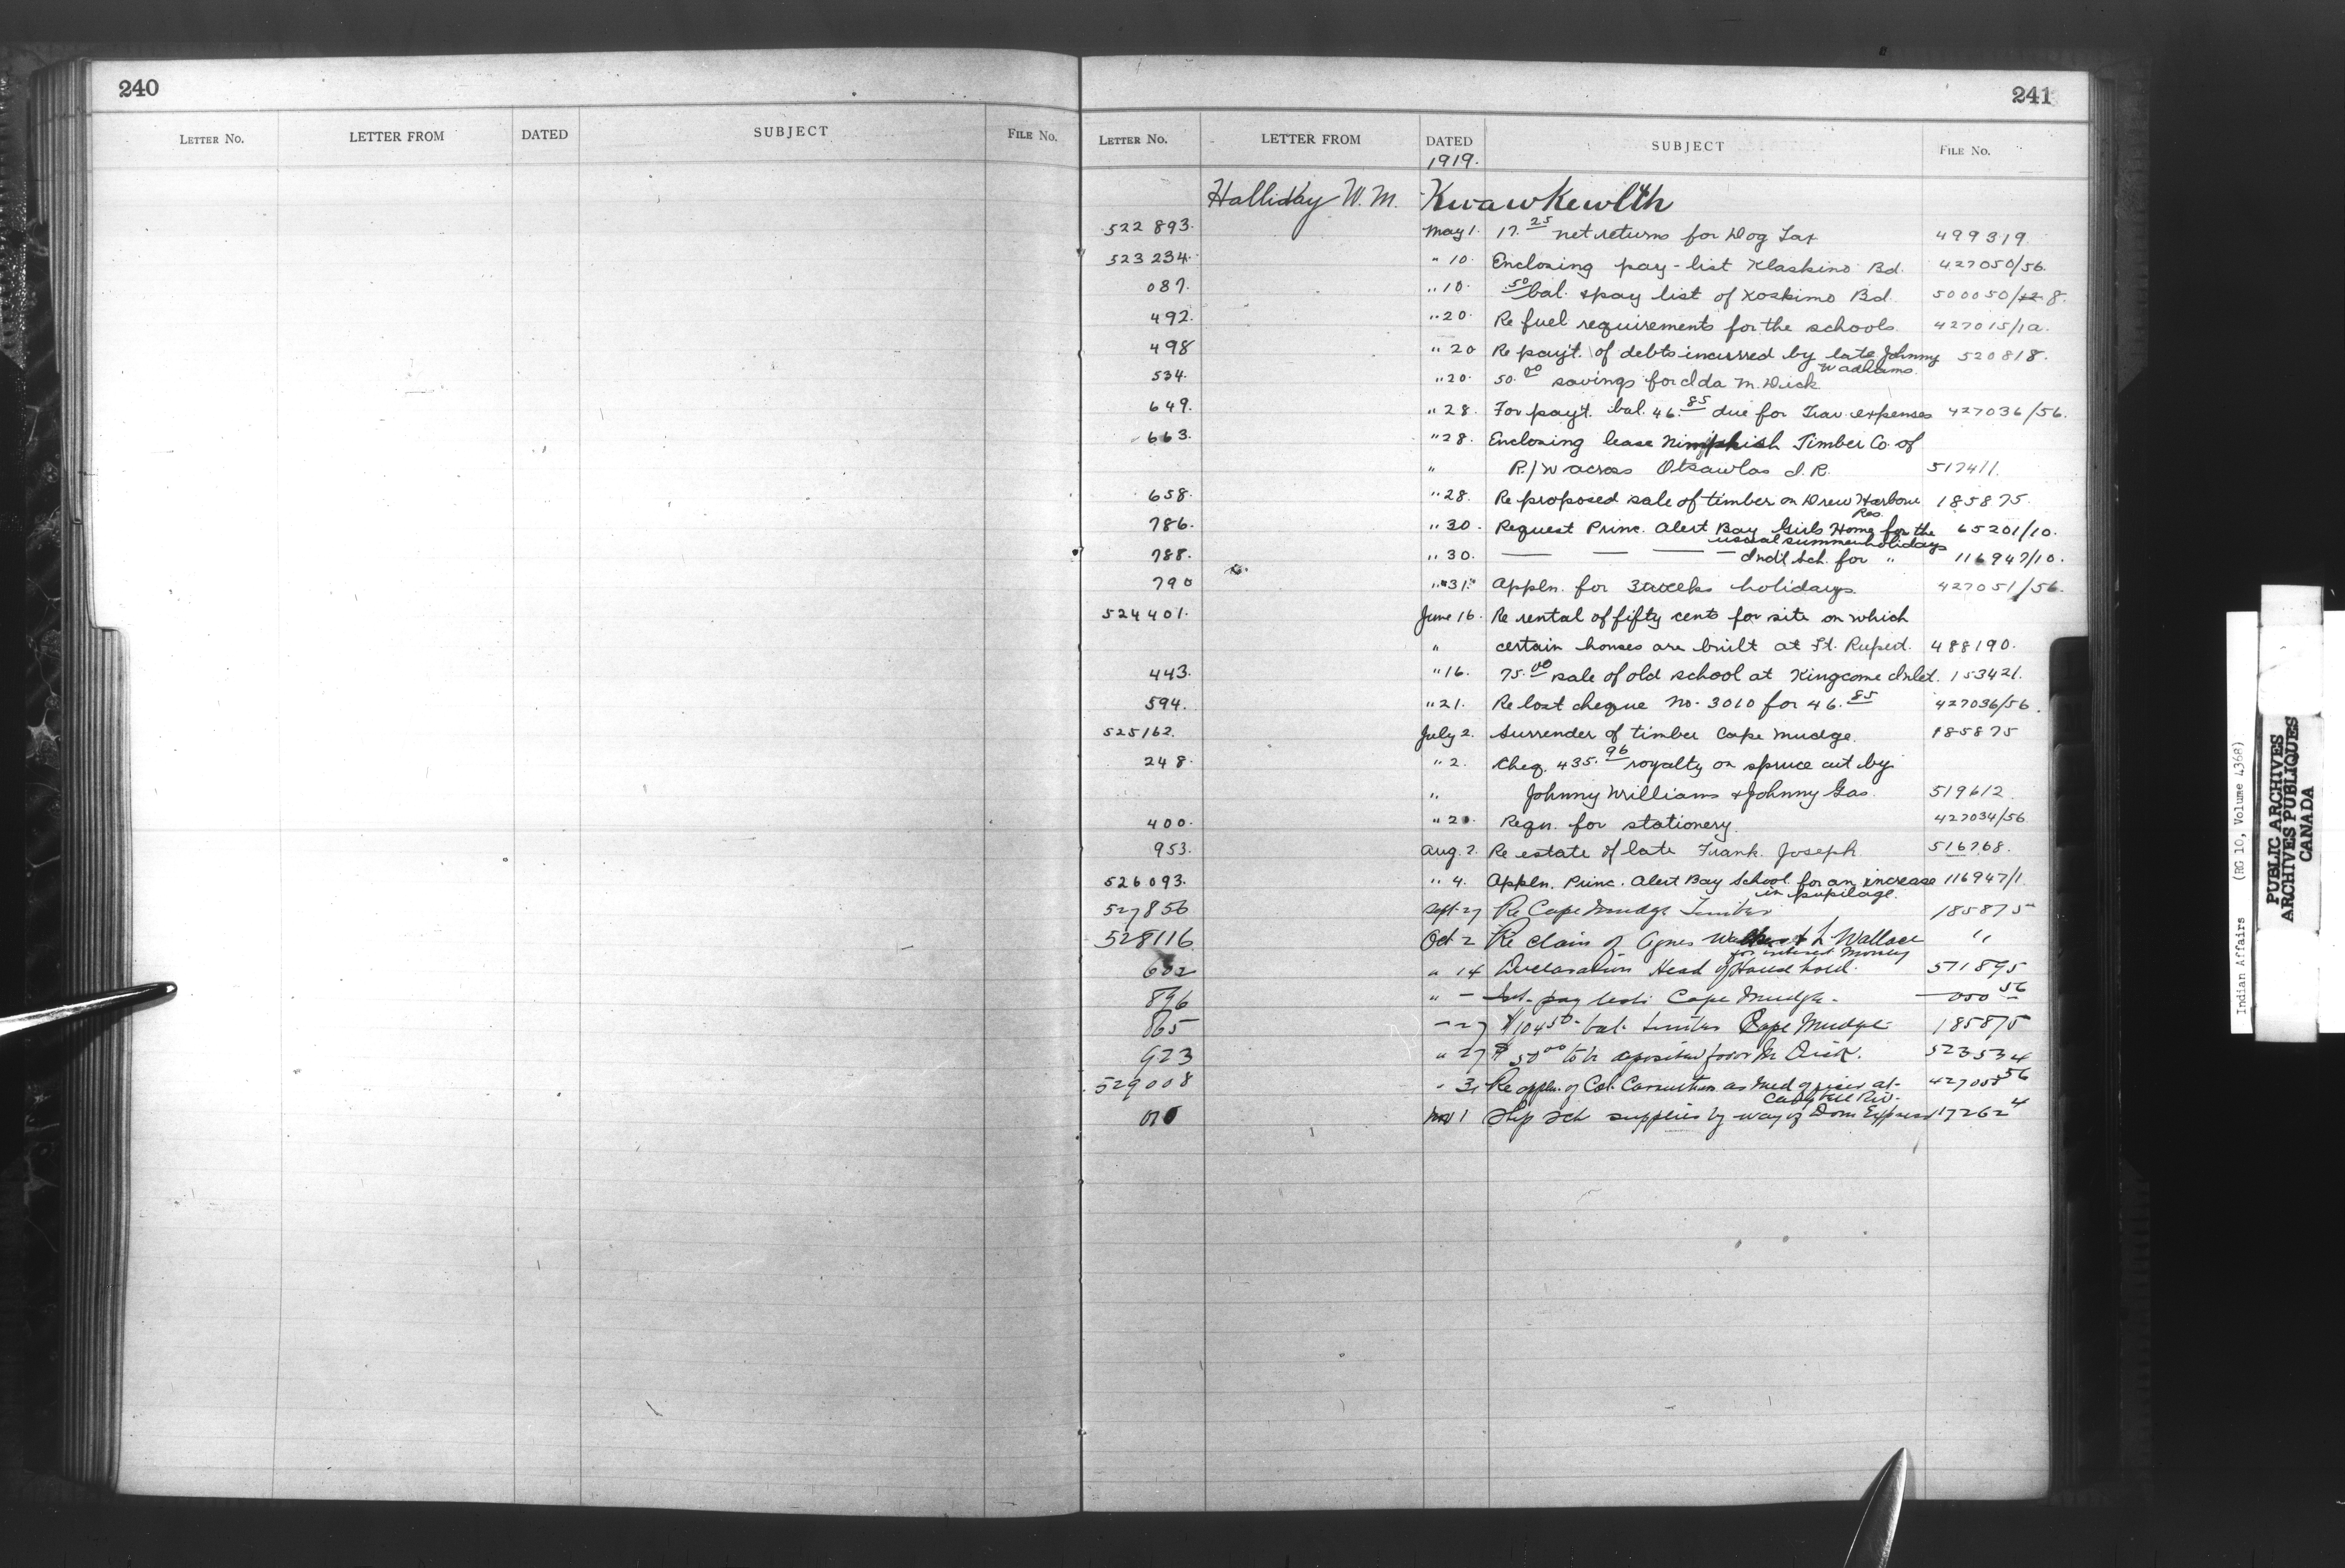 240
LETTER NO. LETTER FROM DATED SUBJECT FILE NO.
241
LETTER NO. LETTER FROM DATED SUBJECT FILE NO.
1919.
Halliday W. M. Kwawkewlth
522893. May 1. 17.25 net returns for Dog Tax 499319.
523234. " 10. Enclosing pay-list Klaskino Bd. 427050/56.
087. " 10. 50 bal. & pay list of Koskimo Bd. 500050/ 8.
492. " 20. Re fuel requirements for the schools. 427015/1a.
498 " 20 Re pay't. of debts incurred by late Johnny 520818.
Wadhams.
534. " 20. 50.00 savings for Ida M. Dick
649. " 28. For pay't. bal. 46.85 due for Trav. expenses 427036/56.
663. " 28. Enclosing lease Nimpkish Timber Co. of
" R/W across Otsawlas I. R. 517411.
658. " 28. Re proposed sale of timber on Drew Harbour 185875.
Res.
786. " 30. Request Princ. Alert Bay Girls Home for the 65201/10.
usual summer holidays
788. " 30. — — — — Ind'l Sch. for " 116947/10.
790 " 31. Appln. for 3 weeks holidays. 427051/56.
524401. June 16. Re rental of fifty cents for site on which
" certain houses are built at Ft. Rupert. 488190.
443. " 16. 75.00 sale of old school at Kingcome Inlet. 153421.
594. " 21. Re lost cheque No. 3010 for 46.85 427036/56.
525162. July 2. Surrender of timber Cape Mudge. 185875
248. " 2. Cheq. 435.96 royalty on spruce cut by
" Johnny Williams & Johnny Gas. 519612
400. " 2 . Reqn. for stationery. 427034/56
953. Aug. 2. Re estate of late Frank Joseph. 516768.
526093. " 4. Appln. Princ. Alert Bay School for an increase 116947/1
in pupilage.
527856 Sept. 27 Re Cape Mudge Timber 185875
528116 Oct 2 Re claim of Agnes & L Wallace "
for interest money
602 " 14 Declaration Head of Household. 571895
896 " — pay lists Cape Mudge. — 050 56
865 — 27 $104.50 bal. timber Cape Mudge 185875
923 " 27 $50.00 to be deposited for M Dick. 523534
529008 " 31 Re appln. of Col. as Med officer at 56
Campbell Riv.
Nov 1 Ship Sch supplies by way of Dom Express 17262 4
Indian Affairs (RG 10, Volume 4368)
PUBLIC ARCHIVES
ARCHIVES PUBLIQUES
CANADA